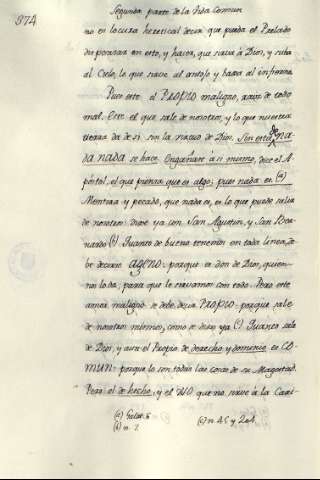 874
Segunda parte de la Vida Comun
no en locura heretical decir que pueda el Prelado
dis ponsar en esto, y hacer, que sirva à Dios, y suba
al Cielo, lo que sirve al antojo y baxa al infierno
Pues este el PROPIO maligno, raiz de todo
mal. Este el que sale de nosotros, y lo que nuestra
tierra da de sí sin la gracia de Dios. Sin esta de na-
da nada se hace. Engañase à si mismo, dice el A-
póstol, el que piensa que es algo; pues nada es. (a)
Mentira y pecado, que nada es, es lo que puede salir
de nosotros: dixe ya con San Agustin, y San Ber-
nardo (b) Quanto de bueno tenemos en toda linea, de-
be decirse AGENO: porque es don de Dios, quien
nos lo da, para que le sirvamos con todo. Pero este
amor maligno se debe decir PROPIO: porque sale
de nosotros mismos, como se dixo ya (c) Quanto sale
de Dios, y aun el Propio de derecho y dominio es CO-
MUN: porque lo son todas las cosas de su Magestad.
Pero el de hecho, y el USO que no sirve à la Cari-
(a) Galat. 6
(b) n. 2
(c) n. 45 y 201.